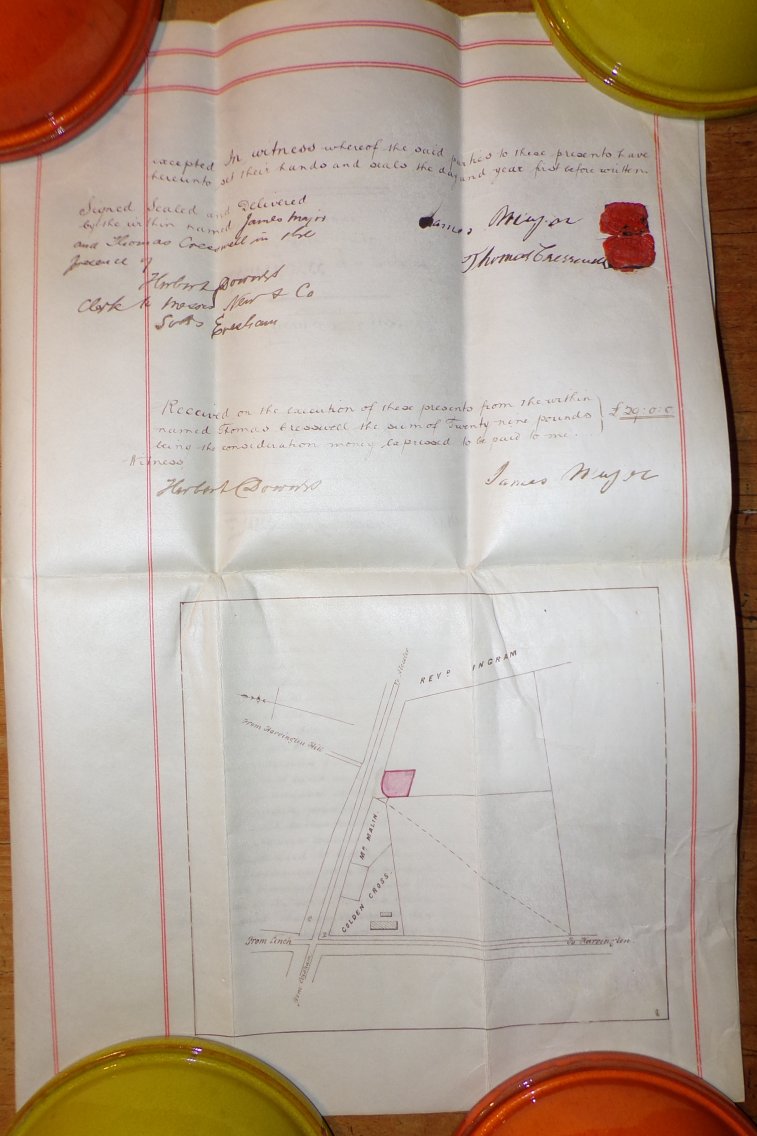 excepted In witness whereof the said parties to these presents have
hereunto set their hands and seals the day and year first before written
Signed Sealed and Delivered
by the within named James Major
and Thomas Cresswell in the
presence of
Herbert
Clerk to Messrs New & Co
Solrs Evesham
James Major
Thomas Cresswell
Received on the execution of these presents from the within
named Thomas Cresswell the sum of Twenty nine pounds
being the consideration money expressed to be paid to me.
£29:0:0
Witness
Herbert
James Major
REVD INGRAM
to Alcester
From Harvington Hill
MR MALIN
GOLDEN CROSS
From Lench
To Harvington
From Evesham